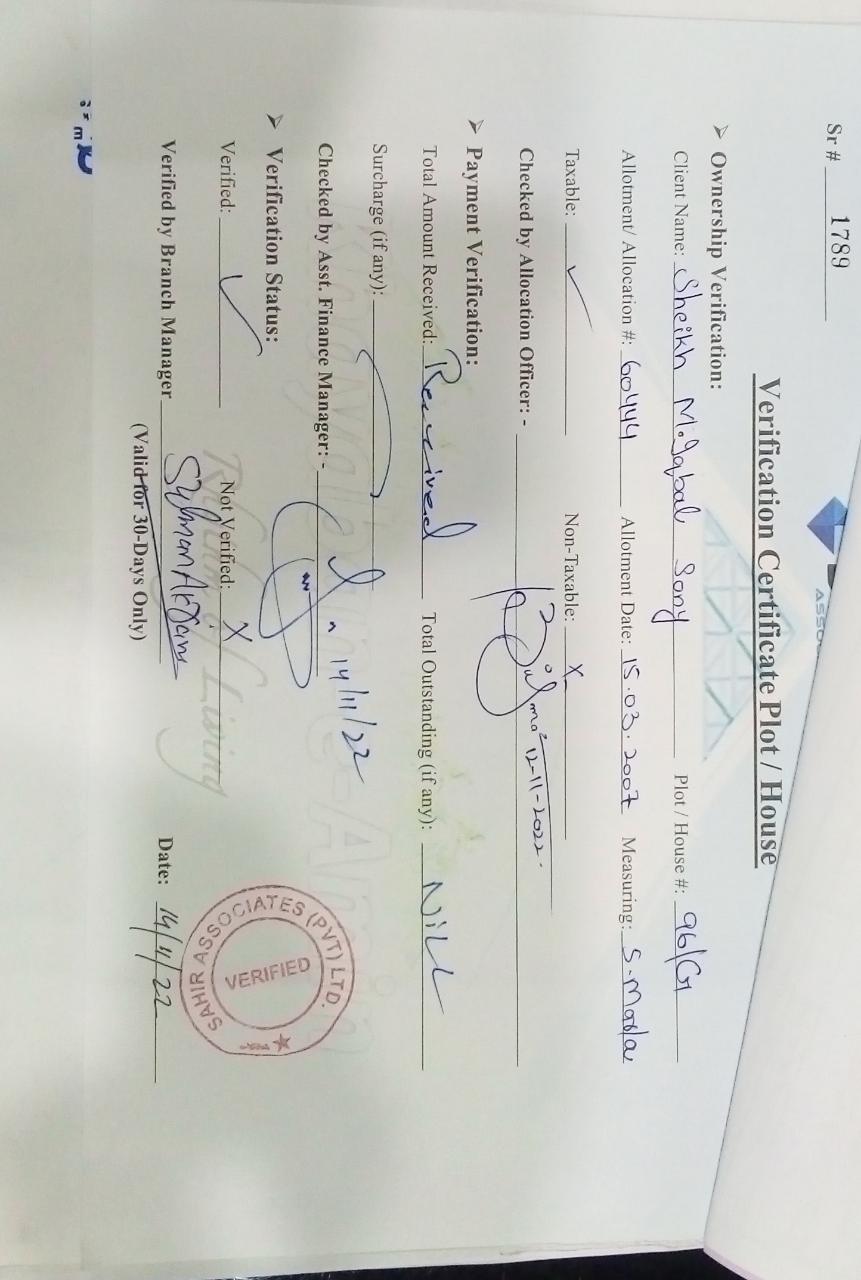 Sr # 1789
ASSO
Verification Certificate Plot / House
➤ Ownership Verification:
Client Name: Sheikh M.Iqbal Sony Plot / House #: 96/G1
Allotment/ Allocation #: 60444 Allotment Date: 15.03.2007 Measuring: 5-Marla
Taxable: ✓ Non-Taxable: X
Checked by Allocation Officer: - 12-11-2022.
➤ Payment Verification:
Total Amount Received: Received Total Outstanding (if any): Nill
Surcharge (if any):
Checked by Asst. Finance Manager: - 14/11/22
➤ Verification Status:
Verified: ✓ Not Verified: X
Verified by Branch Manager Salman Akram Date: 14/11/22
(Valid for 30-Days Only)
SAHIR ASSOCIATES (PVT) LTD.
VERIFIED
Living